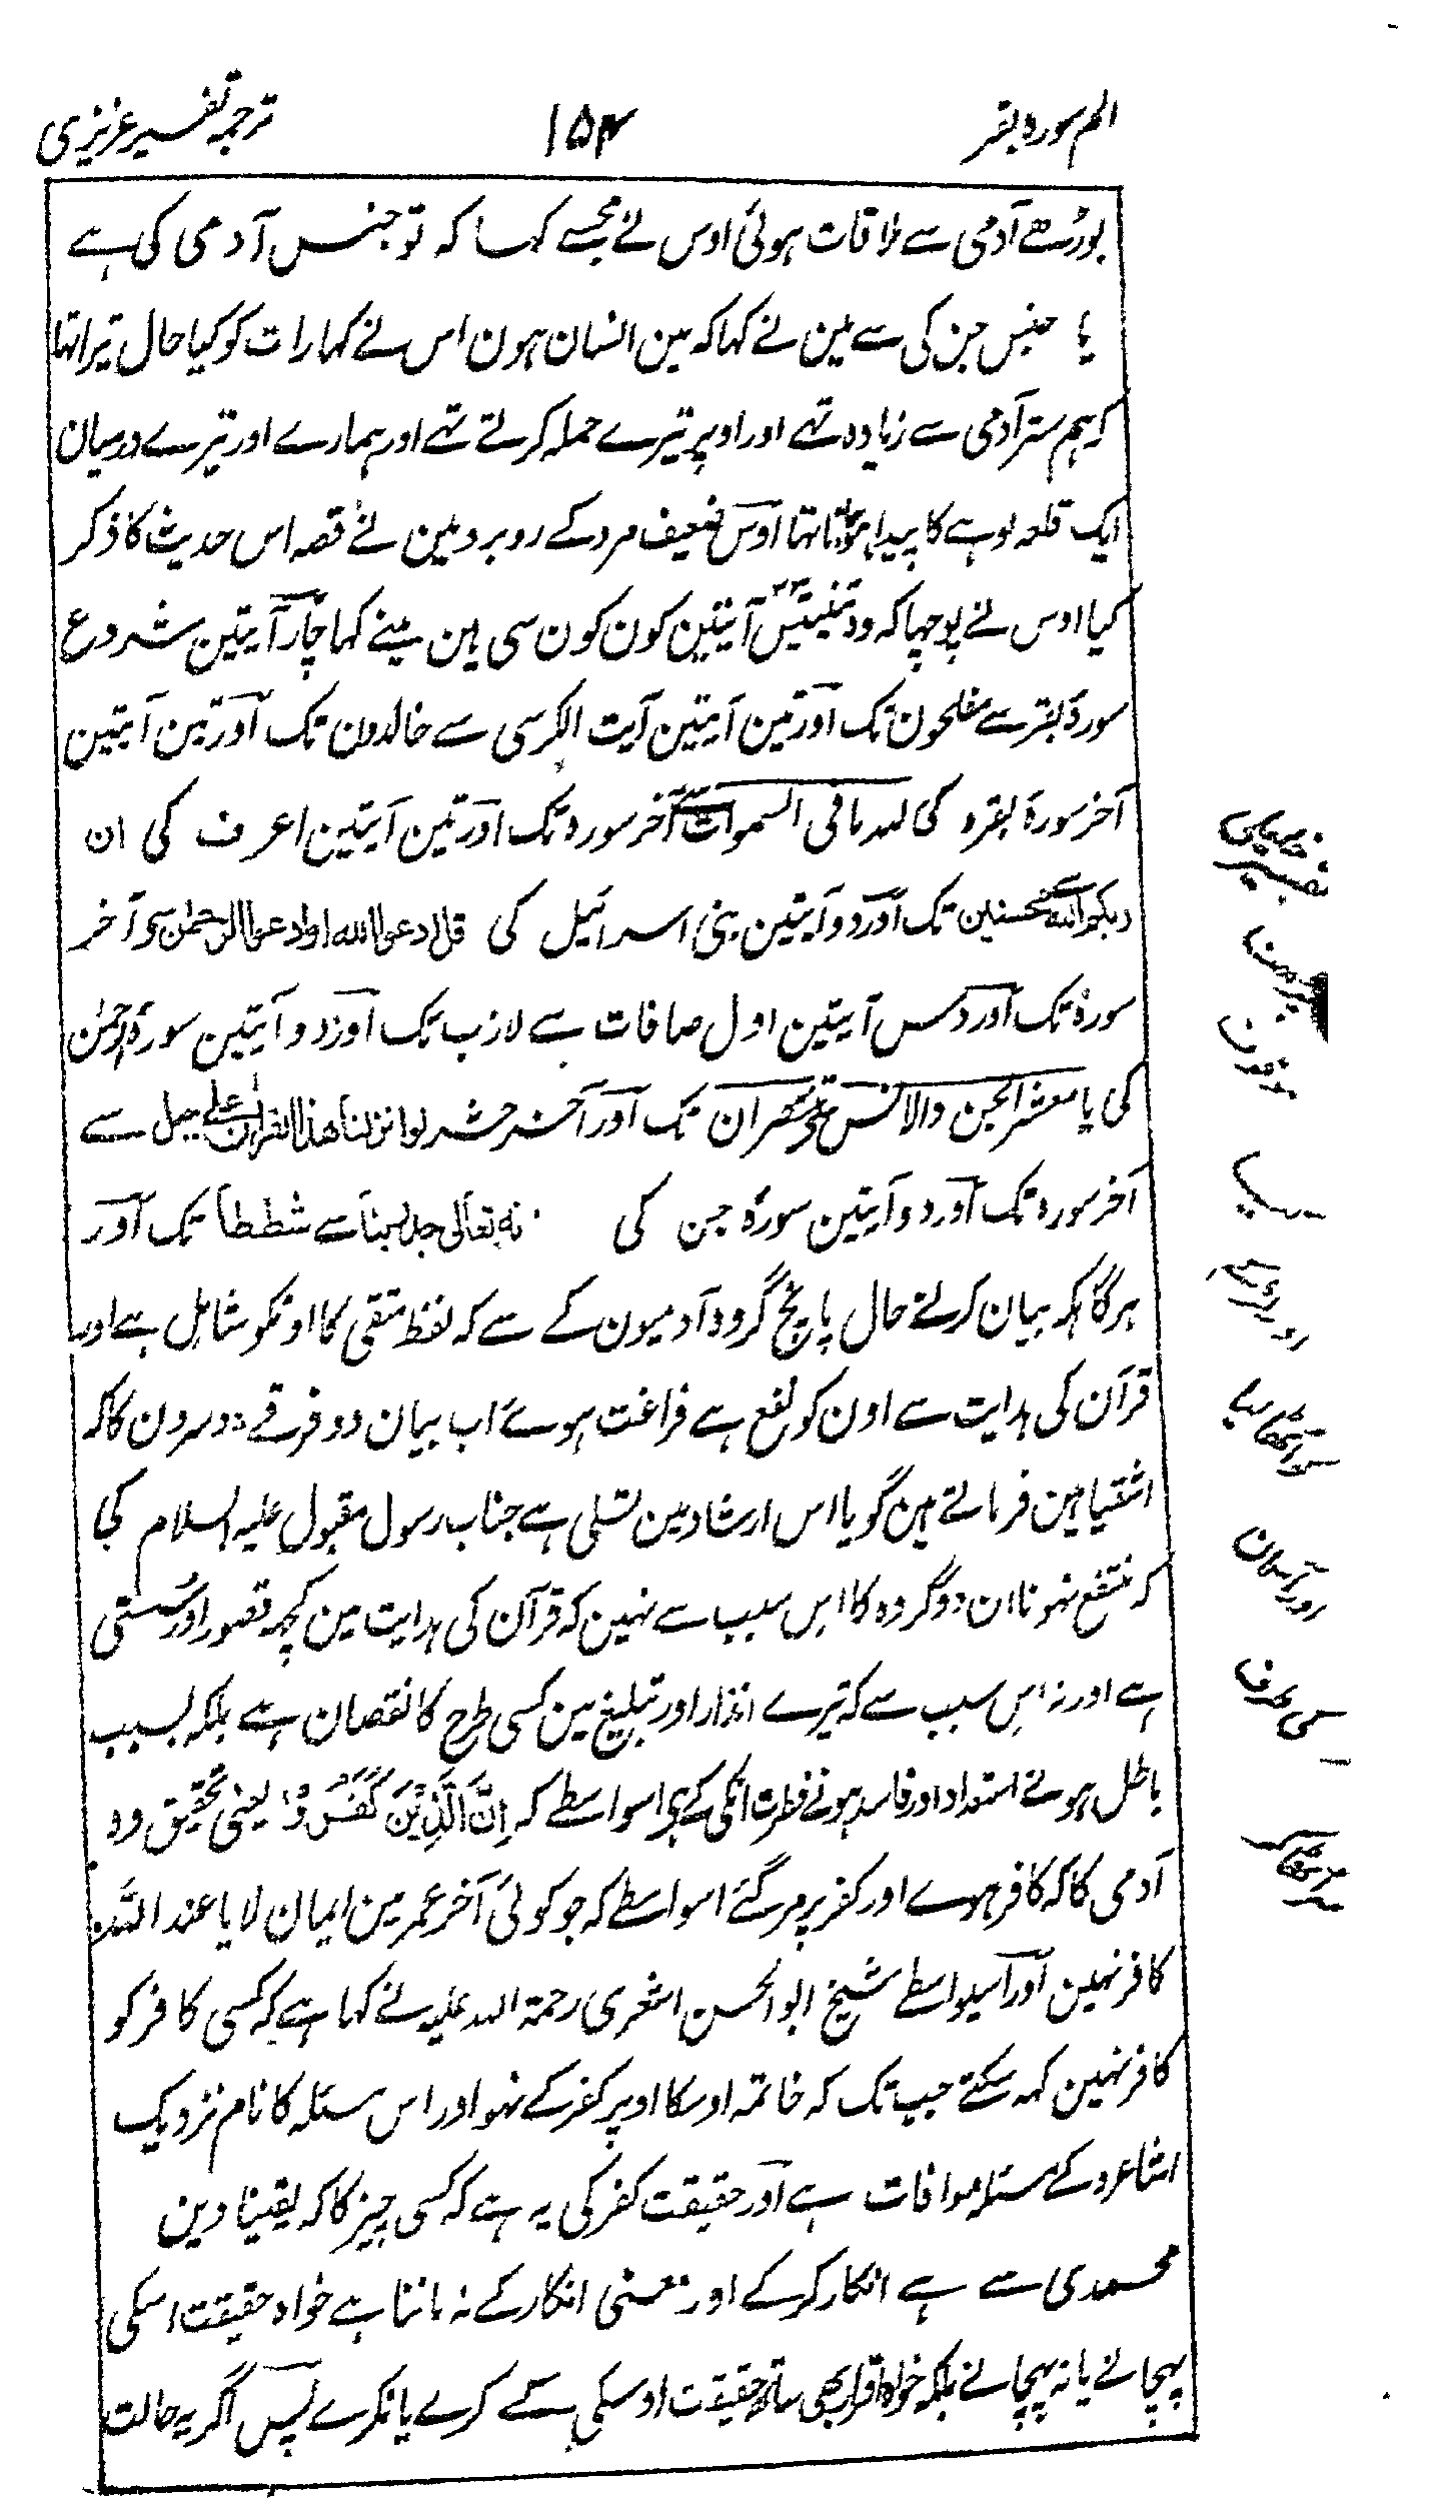 الم سورہ بقر
۱۵۴
ترجمہ تفسیر عزیزی
بوڑھے آدمی سے ملاقات ہوئی اوس نے مجھسے کہا کہ تو جنس آدمی کی ہے
یا جنس جن کی سے مین نے کہا کہ مین انسان ہون اس نے کہا رات کو کیا حال تیرا تھا
کہ ہم ستر آدمی سے زیادہ تھے اور اوپر تیرے حملہ کرتے تھے اور ہمارے اور تیرے درمیان
ایک قلعہ لوہے کا پیدا ہو جاتا تھا اوس ضعیف مرد کے روبرو مین نے قصہ اس حدیث کا ذکر
کیا اوس نے پوچھا کہ وہ تینتیس آیتین کون کون سی ہین مینے کہا چار آیتین شروع
سورۂ بقر سے مفلحون تک اور تین آیتین آیت الکرسی سے خالدون تک اور تین آیتین
آخر سورۂ بقرہ کی للہ مافی السموات سے آخر سورہ تک اور تین آیتین اعرف کی ان
ربکم اللہ سے محسنین تک اور دو آیتین بنی اسرائیل کی قل ادعوا اللہ او ادعوا الرحمٰن سے آخر
سورۃ تک اور دس آیتین اول صافات سے لازب تک اور دو آیتین سورۂ رحمٰن
کی یا معشر الجن والانس سے تنتصران تک اور آخر حشر لو انزلنا ھذا القرآن علی جبل سے
آخر سورہ تک اور دو آیتین سورۂ جن کی نہ تعالی جد ربنا سے شططاً تک اور
ہرگاہ کہ بیان کرنے حال پانچ گروہ آدمیون کے سے کہ لفظ متقی کا اونکو شامل ہے اور
قرآن کی ہدایت سے اون کو نفع ہے فراغت ہوے اب بیان دو فرقے دوسرون کا کہ
اشقیا ہین فرماتے ہین گویا اس ارشاد مین تسلی ہے جناب رسول مقبول علیہ السلام کی
کہ منتفع نہونا ان دو گروہ کا اس سبب سے نہین کہ قرآن کی ہدایت مین کچھ قصور اور سستی
ہے اور نہ اس سبب سے کہ تیرے انذار اور تبلیغ مین کسی طرح کا نقصان ہے بلکہ بسبب
باطل ہونے استعداد اور فاسد ہونے فطرت انکی کے ہے اسواسطے کہ اِنَّ الَّذِیْنَ کَفَرُوْا یعنی تحقیق وہ
آدمی کا کہ کافر ہوے اور کفر پر مر گئے اسواسطے کہ جو کوئی آخر عمر مین ایمان لایا عند اللہ
کافر نہین اور اسیواسطے شیخ ابو الحسن اشعری رحمۃ اللہ علیہ نے کہا ہے کہ کسی کافر کو
کافر نہین کہہ سکتے جب تک کہ خاتمہ اوسکا اوپر کفر کے نہو اور اس مسئلہ کا نام نزدیک
اشاعرہ کے مسئلہ موافات ہے اور حقیقت کفر کی یہ ہے کہ کسی چیز کا کہ یقینا دین
محمدی سے ہے انکار کرکے اور معنی انکار کے نہ ماننا ہے خواہ حقیقت اسکی
پہچانے یا نہ پہچانے بلکہ خواہ اقرار بھی ساتھ حقیقت اوسکی کے کرے یا نکرے پس اگر یہ حالت